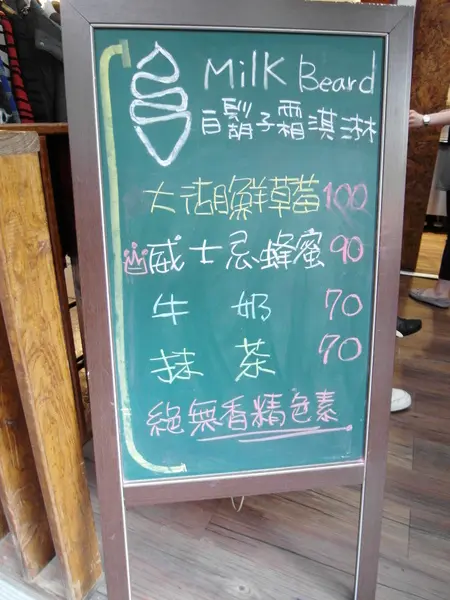 Milk Beard
白鬍子霜淇淋
大湖鮮草莓100
威士忌蜂蜜90
牛奶70
抹茶70
絕無香精色素